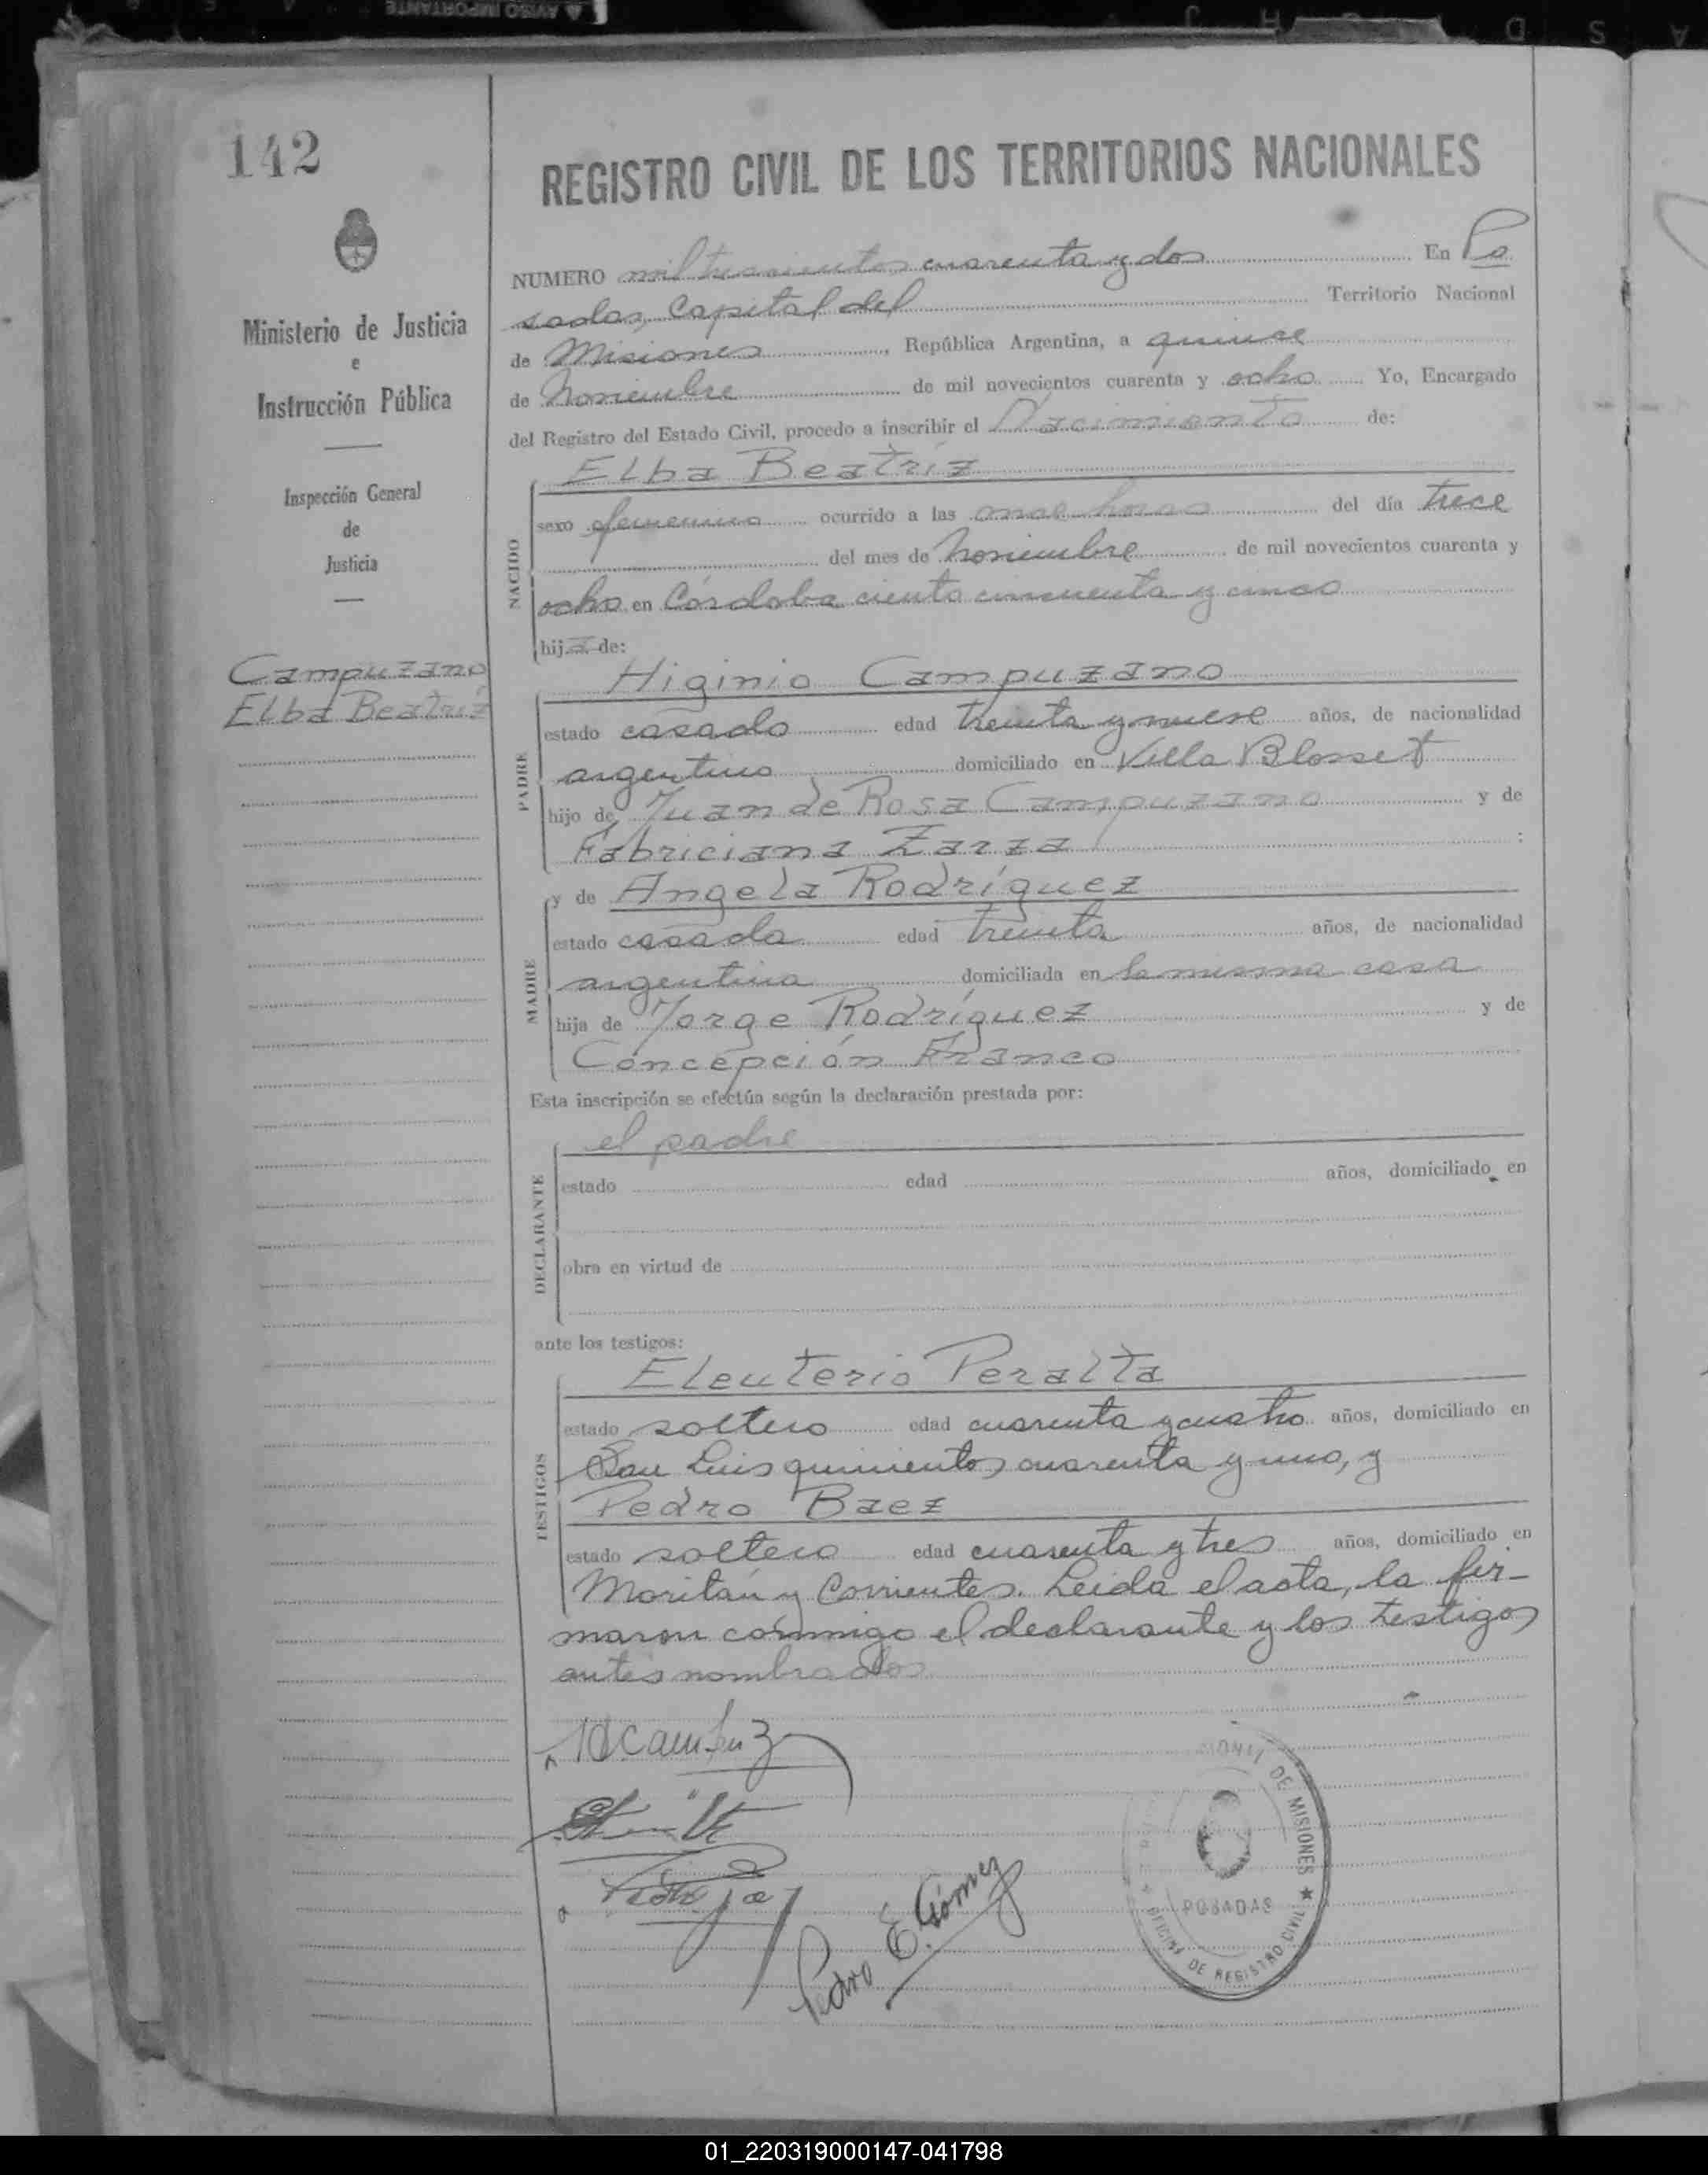 AVISO IMPORTANTE
142
REGISTRO CIVIL DE LOS TERRITORIOS NACIONALES
Ministerio de Justicia
e
Instrucción Pública
Inspección General
de
Justicia
Campuzano
Elba Beatriz
NUMERO mil trescientos cuarenta y dos En Po
sadas, Capital del Territorio Nacional
de Misiones, República Argentina, a quince
de Noviembre de mil novecientos cuarenta y ocho Yo, Encargado
del Registro del Estado Civil, procedo a inscribir el Nacimiento de:
Elba Beatriz
NACIDO
sexo femenino ocurrido a las once horas del día trece
del mes de Noviembre de mil novecientos cuarenta y
ocho en Córdoba ciento cincuenta y cinco
hija de:
Higinio Campuzano
PADRE
estado casado edad treinta y nueve años, de nacionalidad
argentino domiciliado en Villa Blosset
hijo de Juan de Rosa Campuzano y de
Fabriciana Zarza :
y de Angela Rodríguez
MADRE
estado casada edad treinta años, de nacionalidad
argentina domiciliada en la misma casa
hija de Jorge Rodríguez y de
Concepción Franco
Esta inscripción se efectúa según la declaración prestada por:
el padre
DECLARANTE
estado edad años, domiciliado en
obra en virtud de
ante los testigos:
Eleuterio Peralta
TESTIGOS
estado soltero edad cuarenta y cuatro años, domiciliado en
San Luis quinientos cuarenta y uno, y
Pedro Baez
estado soltero edad cuarenta y tres años, domiciliado en
Moritán y Corrientes. Leida el acta, la fir-
maron conmigo el declarante y los testigos
antes nombrados
Pedro E. Gómez
DE MISIONES ★
POSADAS
OFICINA DE REGISTRO CIVIL
01_220319000147-041798